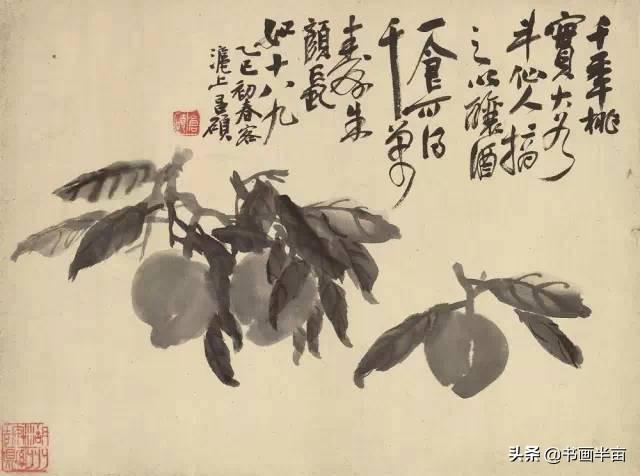 千年桃
實大於
斗仙人摘
之以釀酒
一食可得
千萬
壽朱
顏長
如十八九
乙巳初春客
滬上昌碩
倉碩
湖州安吉縣
头条 @书画半亩